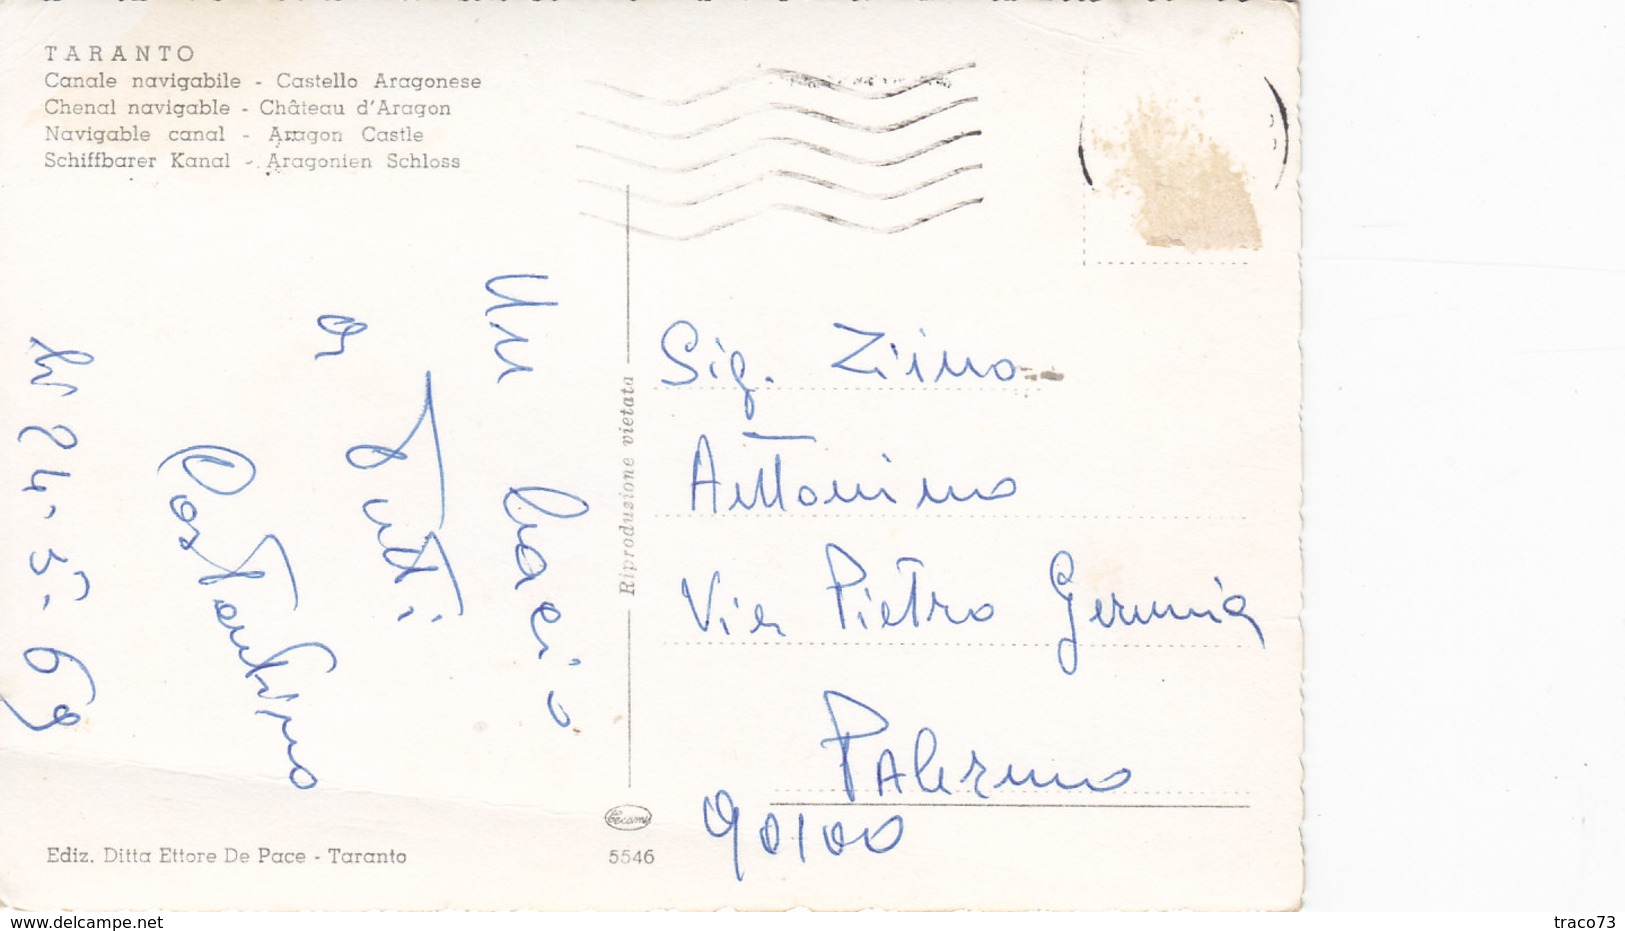 TARANTO
Canale navigabile - Castello Aragonese
Chenal navigable - Château d'Aragon
Navigable canal - Aragon Castle
Schiffbarer Kanal - Aragonien Schloss
Un bacio
a tutti
Costantino
li 24-5-69
Riproduzione vietata
Sig. Zimo
Antonino
Via Pietro Germia
Palermo
90100
Ediz. Ditta Ettore De Pace - Taranto
5546
www.delcampe.net
traco73